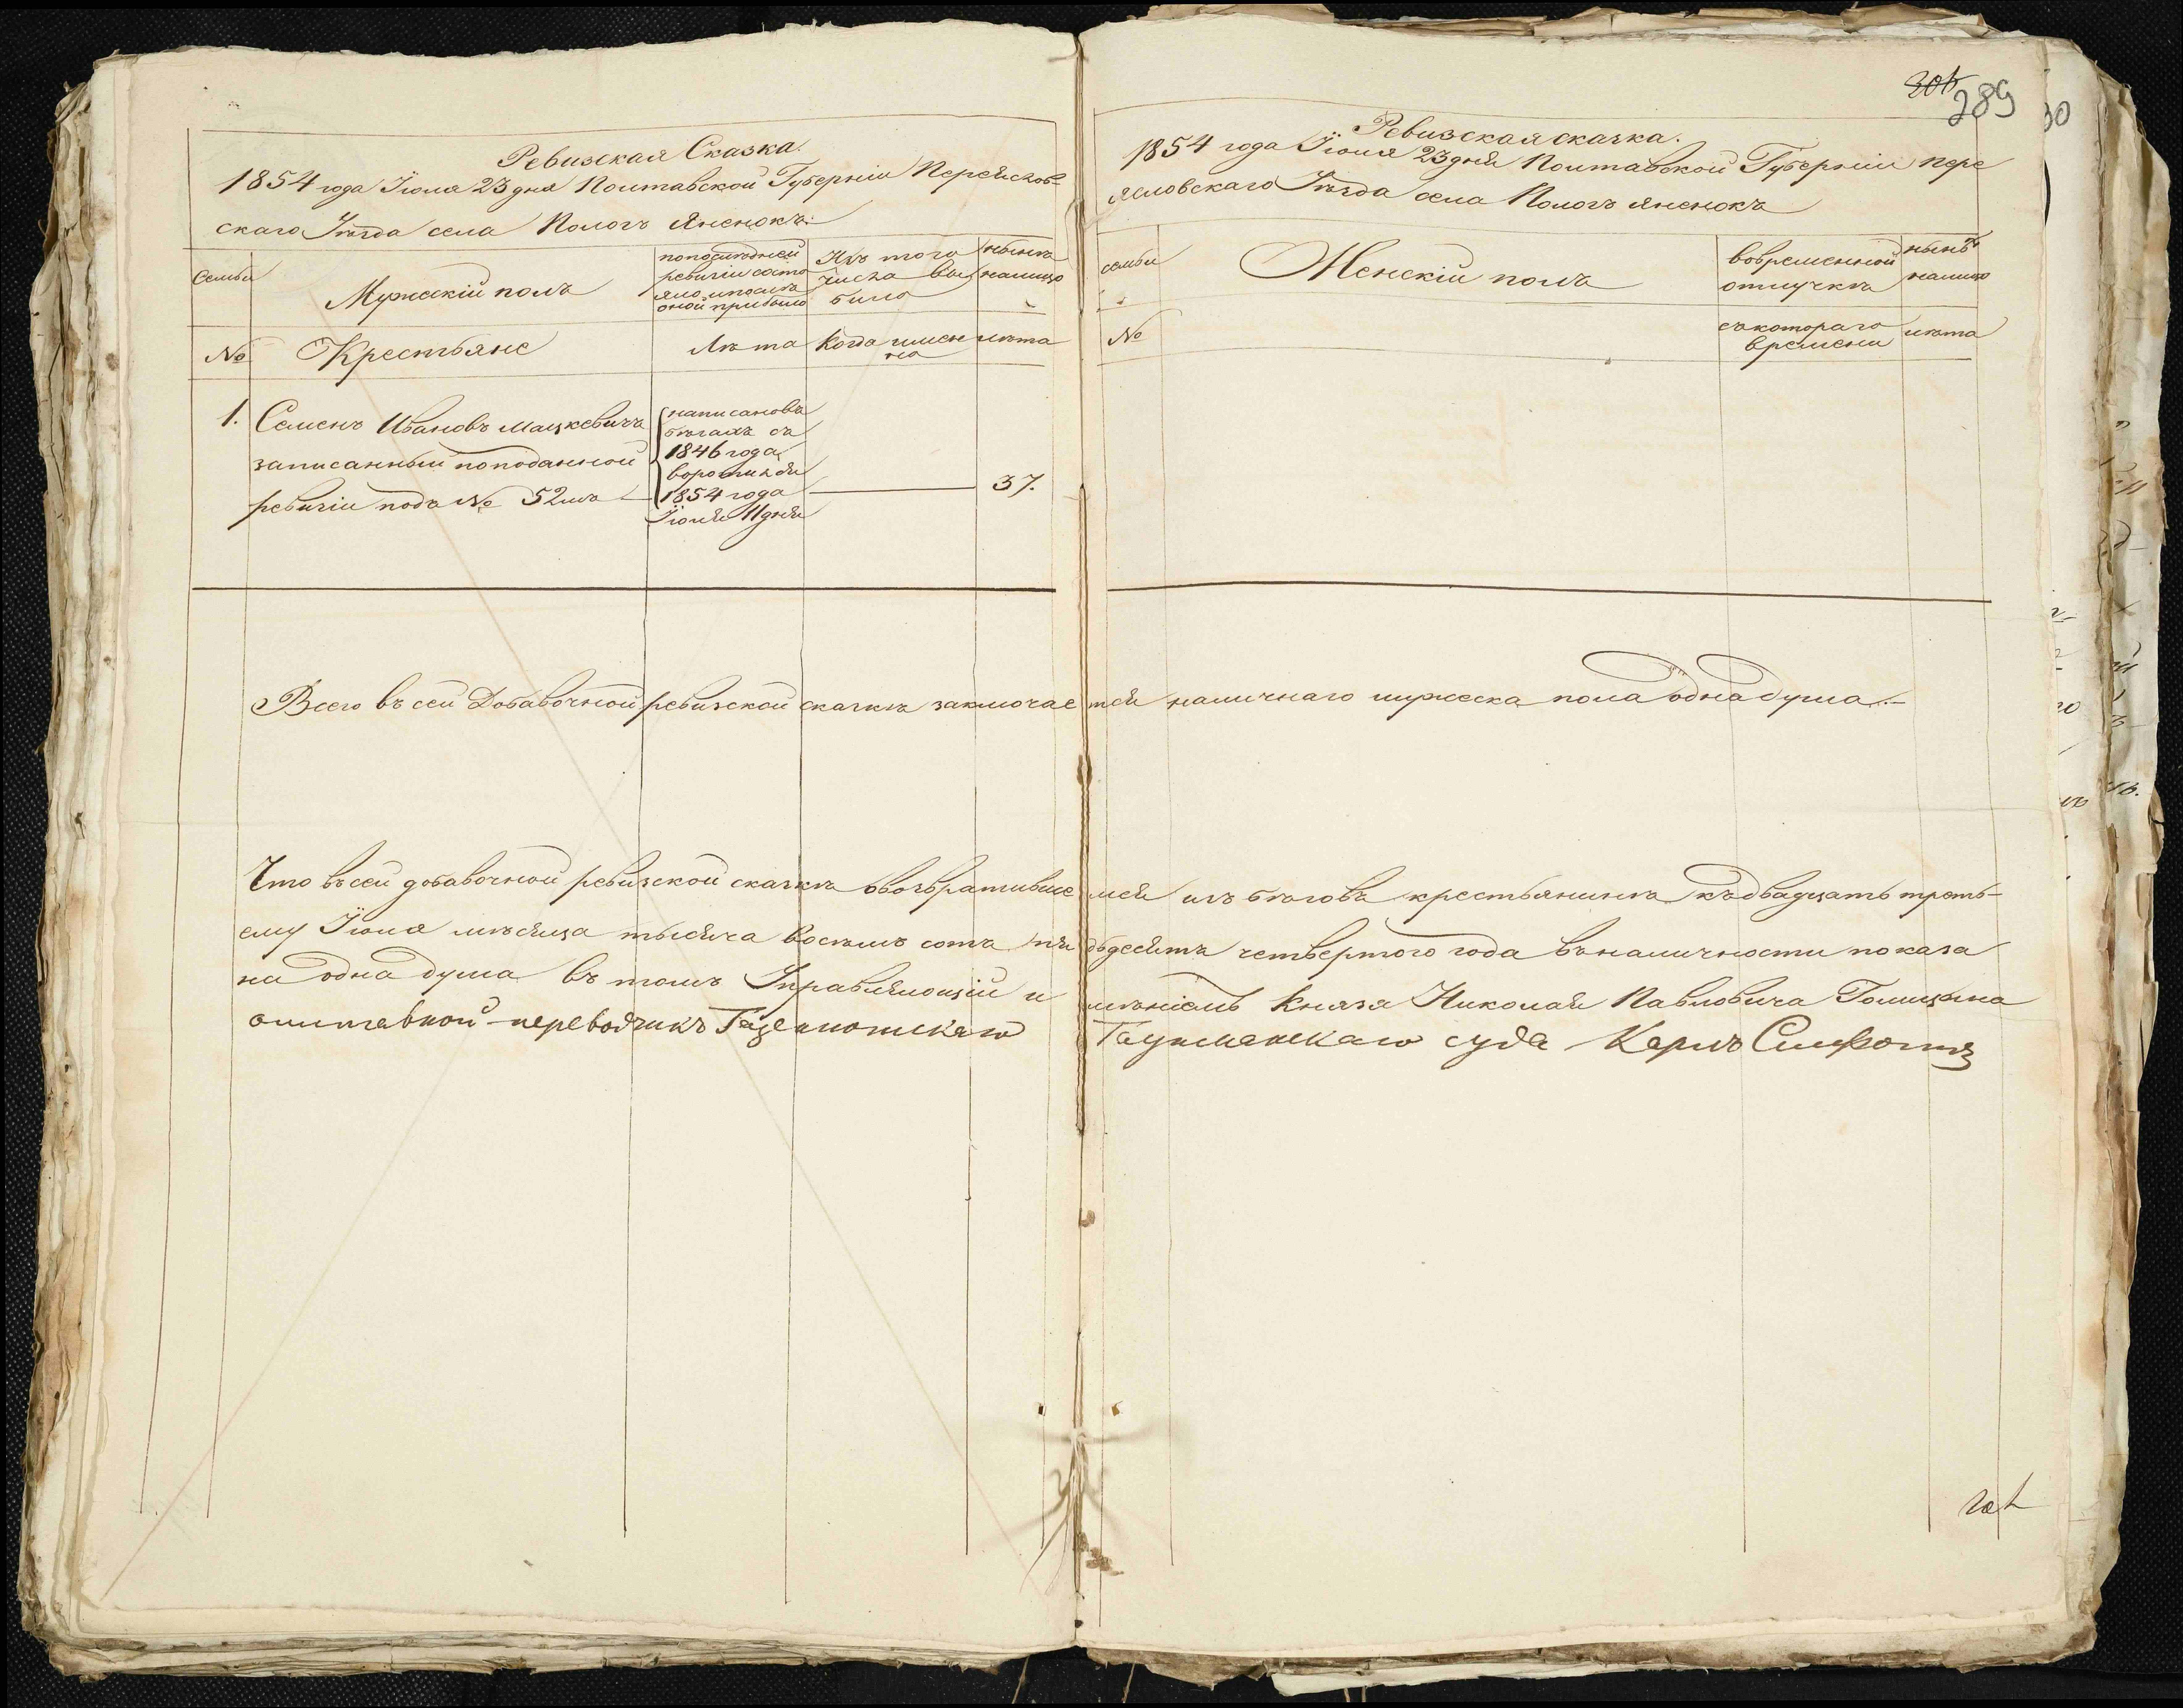 Ревизская Сказка.
1854 года Іюня 23 дня Полтавской Губерніи Переяслов-
скаго Уезда села Пологъ Яненокъ.
Семьи
Мужескій полъ
попоследней
ревизіи состо
яло ипосля
оной прибыло
Изъ того
числа вы
было
нынѣ
налицо
№
Крестьяне
Лѣта
Когда имен
но
лѣта
1.
Семенъ Ивановъ Мацкевичъ
записанный поподанной
ревизіи подъ № 52мъ
написановъ
бѣгахъ съ
1846 года
воротился
1854 года
Іюня 11 дня
37.
304
289
Ревизская сказка.
1854 года Іюня 23 дня Полтавской Губерніи пере
ясловскаго Уѣзда села Пологъ Яненокъ
семьи
Женскій полъ
вовременной
отлучкѣ
нынѣ
налицо
№
съкотораго
времени
лѣта
Всего въ сей Добавочной ревизской сказкѣ заключается наличнаго мужеска пола одна душа.-
Что въсей добавочной ревизской сказкѣ овозвратившемся изъ бѣговъ крестьянинѣ къдвадцать треть-
ему Іюня мѣсяца тысяча восемь сотъ пядьдесятъ четвертого года въналичности показа
на одна душа въ томъ Управляющій имѣніемъ Князя Николая Павловича Голицына
отставной переводчикъ Газенпотскаго Гауптманскаго суда Карлъ